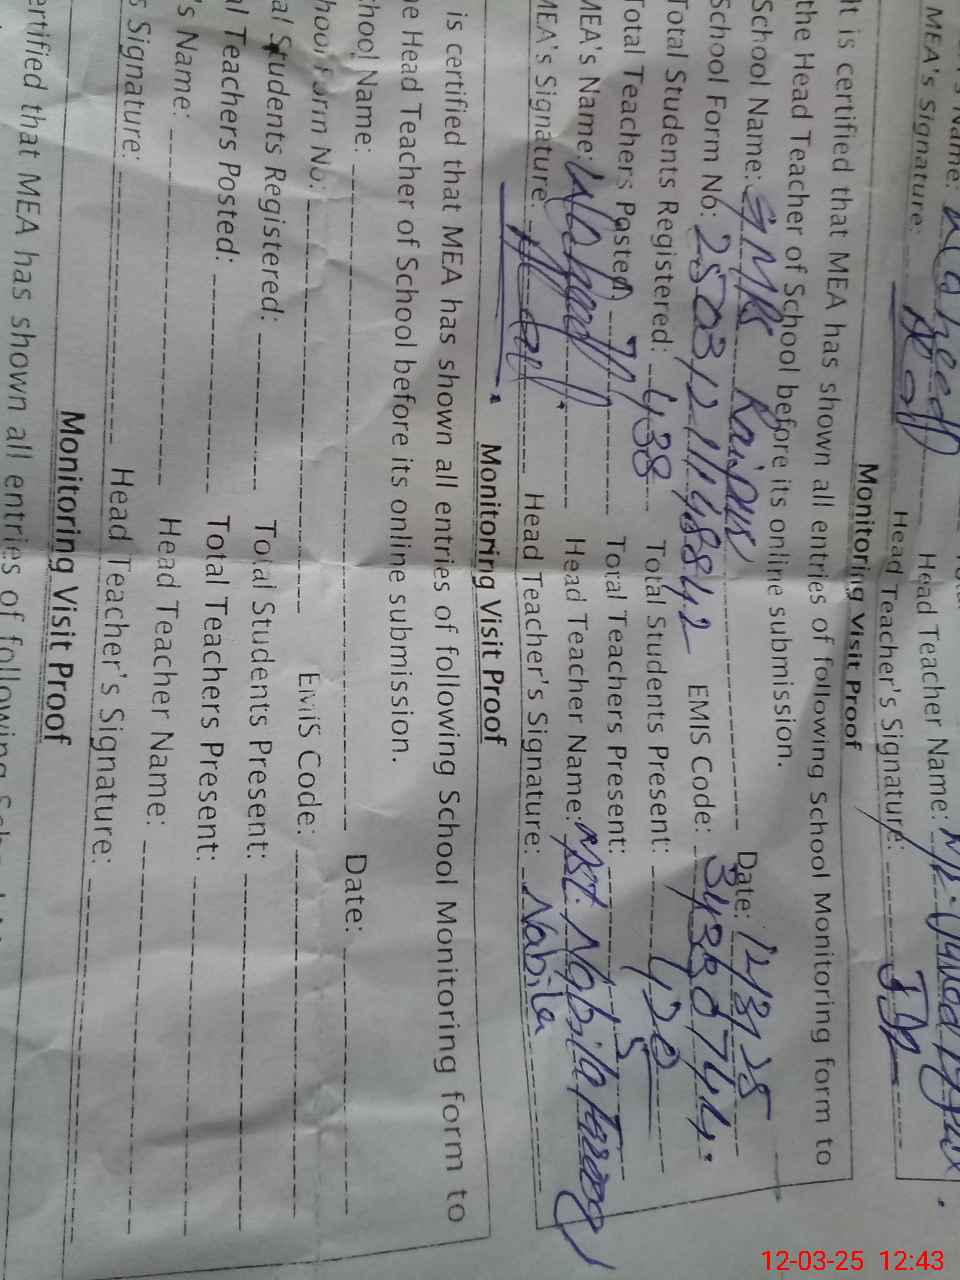 MEA's Name: Waheed Head Teacher Name:
MEA's Signature: Head Teacher's Signature:
Monitoring Visit Proof
It is certified that MEA has shown all entries of following School Monitoring form to
the Head Teacher of School before its online submission.
School Name: GMPS Raipur Date: 12/3/25
School Form No: 25031211148842 EMIS Code:
Total Students Registered: 438 Total Students Present:
Total Teachers Posted: Total Teachers Present: 5
MEA's Name: Waheed Head Teacher Name: Mst. Nabila
MEA's Signature: Head Teacher's Signature: Nabila
Monitoring Visit Proof
is certified that MEA has shown all entries of following School Monitoring form to
he Head Teacher of School before its online submission.
chool Name: Date:
hool Form No: EMIS Code:
al Students Registered: Total Students Present:
al Teachers Posted: Total Teachers Present:
's Name: Head Teacher Name:
s Signature: Head Teacher's Signature:
Monitoring Visit Proof
ertified that MEA has shown all entries of following
12-03-25 12:43